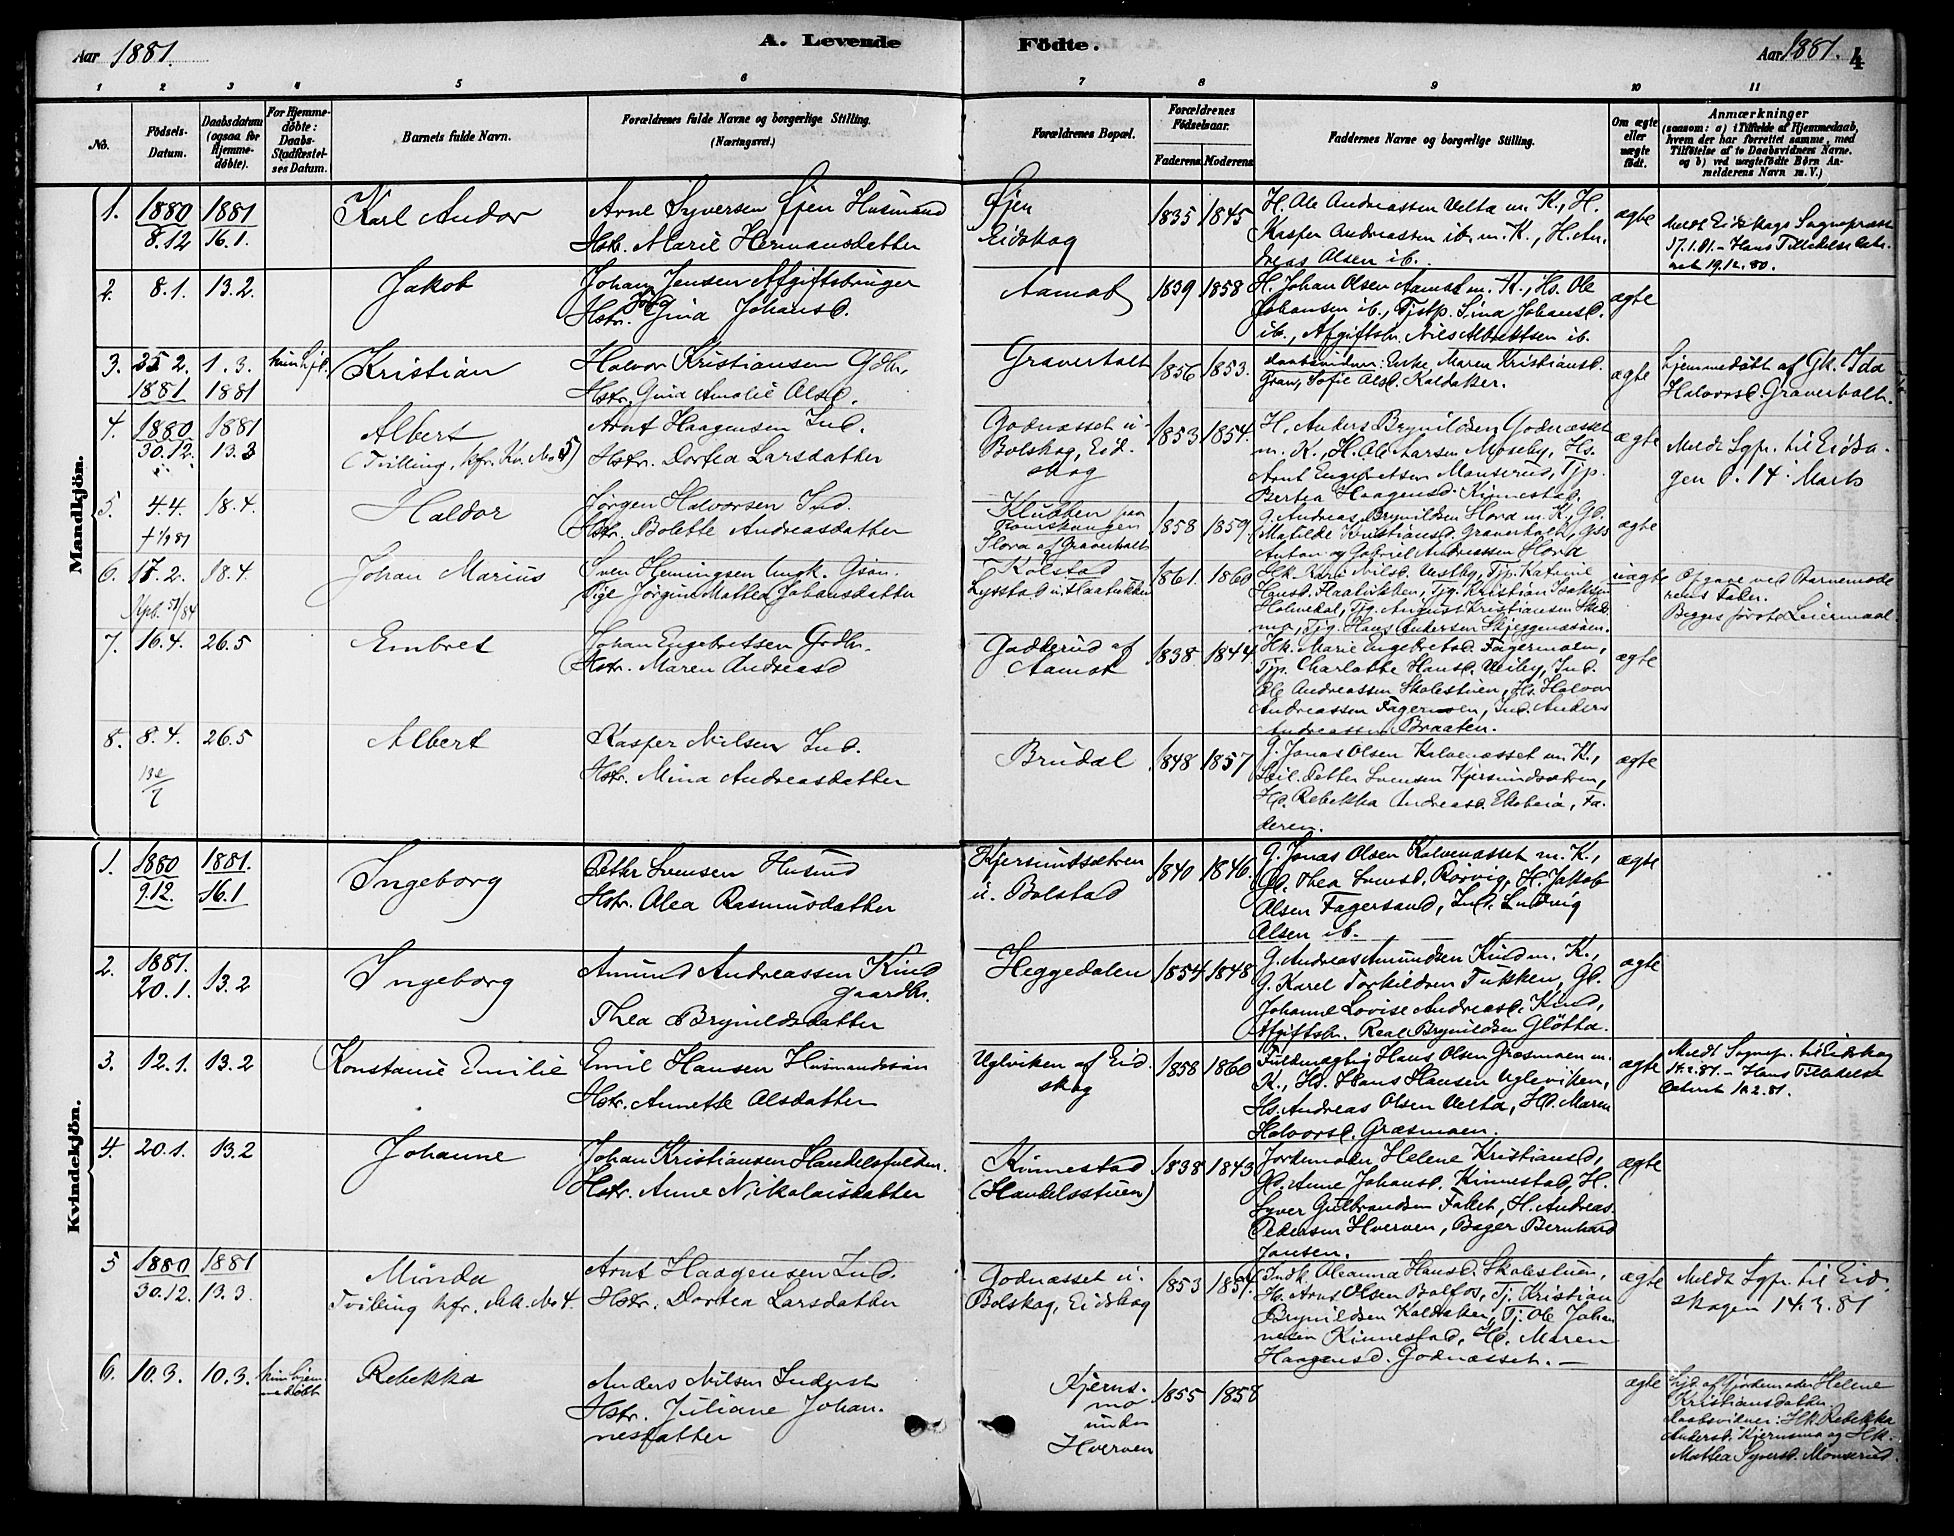 Aar 1881.
A. Levende Födte.
Aar 1881. 4
1 2 3 4 5 6 7 8 9 10 11
No.
Födsels-Datum.
Daabsdatum (ogsaa for Hjemme-döbte).
For Hjemme-döbte: Daabs-Stadfæstelses Datum.
Barnets fulde Navn.
Forældrenes fulde Navne og borgerlige Stilling.
(Næringsvei.)
Forældrenes Bopæl.
Forældrenes Födselsaar.
Faderens Moderens
Faddernes Navne og borgerlige Stilling.
Om ægte eller uægte födt.
Anmærkninger
(saasom: a) i Tilfælde af Hjemmedaab,
hvem der har forrettet samme, med
Tilföielse af to Daabsvidners Navne,
og b) ved uægtefödte Börn An-
melderens Navn m. V.)
Mandkjön.
1. 1880 8.12 1881 16.1. Karl Andor
Arne Syversen Øjen Husmand
Hstr. Marie Hermansdatter
Øjen
Eidskog
1835 1845
H. Ole Andreassen Velta m. K., H.
Kasper Andreassen ib. m. K., H. An-
dreas Olsen ib.
ægte
Meldt Eidskogs Sognepræst
17.1.81. - Hans Tilladelse
19.12.80.
2. 8.1. 13.2. Jakob
Johan Jensen Afgiftsbruger
Hstr. Gina Johansd.
Aamot
1839 1858
H. Johan Olsen Aamot m. K., Hs. Ole
Johansen ib., Tjp. Lina Johansd.
ib., Afgiftsbr. Nils Albertsen ib.
ægte
3. 25.2. 1881 1.3. 1881 kun hjd. Kristian
Halvor Kristiansen Gdbr.
Hstr. Gina Amalie Olsd.
Graverholt
1856 1853.
Daabsvidner: Enke Maren Kristiansd.
Gran, Sofie Olsd. Kaldaker.
ægte
hjemmedøbt af Gk. Ida
Halvorsd. Graverholt.
4. 1880 30.12. 1881 13.3 Albert
(Tvilling, kfr. Kv. No 5)
Arnt Haagensen Ind.
Hstr. Dortea Larsdatter
Godnæsset u.
Bolskog, Eid-
skog
1853 1854.
H. Anders Brynildsen Godnæsset
m. K., H. Ole Larsen Moseby, Hs.
Arnt Engebretsen Monserud, Tjp.
Bertea Haagensd. Kinnestad.
ægte
Meldt Sgpr. til Eidsko-
gen d. 14 Marts
5. 4.4. 18.4. Haldor
Jørgen Halvorsen Ind.
Hstr. Bolette Andreasdatter
Klubben
Slora af Graverholt
1858 1859
G. Andreas Brynildsen Slora m. K., Gd.
Matilde Kristiansd. Graverholt, Gss
Anton og Gabriel Andreassen Slora
ægte
6. 17.2. 18.4. Johan Marius
Sven Hemingsen Ungk. Gsøn.
Pige Jørgine Mathea Johansdatter
Kolstad
1861. 1860
Hk. Kari Nilsd. Vestby, Tjp. Katrine
Hansd. Haabikken, Tjg. Kristian Isaksen
Holmedal, Tjg. August Kristiansen Sked-
mo, Tjg. Hans Andersen Skjeggenæsåen.
uægte
Opgave ved Barnemode-
rens Fader.
Begges første Leiermaal.
7. 16.4. 26.5 Embret
Johan Engebretsen Grdbr.
Hstr. Maren Andreasd
Godkerud af
Aamot
1838 1844
Hk. Marie Engebretsd. Fagermoen,
Tjp. Charlotte Hansd. Veiby, Ind.
Ole Andreassen Skolestuen, Hs. Halvor
Andreassen Fagermoen, Ind. Anders
Andreassen Braaten.
ægte
8. 8.4. 26.5 Albert
Kasper Nilsen Ind.
Hstr. Mina Andreasdatter
Brudal
1848 1857
G. Jonas Olsen Kalvenæsset m. K.,
Petter Svensen Kjersundsætren,
Hd. Rebekka Andreasd. Ekebøia, Fa-
deren.
ægte
Kvindekjön.
1. 1880 9.12. 1881. 16.1 Ingeborg
Petter Svensen Husmd
Hstr. Olea Rasmusdatter
Kjersundsætren
u. Bolstad
1840 1846.
G. Jonas Olsen Kalvenæsset m. K.,
Gd. Thea Svensd. Rørvig, H. Jakob
Olsen Fagersand, Ind. Ludvig
Olsen ib.
ægte
2. 1881. 20.1. 13.2 Ingeborg
Amund Andreassen Kind
Gaardbr.
Thea Brynildsdatter
Heggedalen
1854 1848
G. Andreas Amundsen Kind m. K.,
G. Karel Torkildsen Tukken, Gd.
Johanne Lovise Andreasd. Kind,
Afgiftsbr. Real Brynildsen Gløtta.
ægte
3. 12.1. 13.2 Konstanse Emilie
Emil Hansen Husmandssøn
Hstr. Annette Olsdatter
Uglviken af Eid-
skog
1858 1860
Fuldmægtig Hans Olsen Græsmoen m.
K., Hs. Hans Hansen Ugleviken,
Hs. Andreas Olsen Velta, Hd. Maren
Halvorsd. Græsmoen.
ægte
Meldt Sognep. til Eidskog
14.2.81. - Hans Tilladelse
dateret 10.2.81.
4. 20.1. 13.2 Johanne
Johan Kristiansen Handelsfuldm.
Hstr. Anne Nikolaisdatter
Kinnestad
(Handelsstuen)
1838 1843
Jordemoder Helene Kristiansd,
Gd. Anne Johansd. Kinnestad, H.
Syver Gulbrandsen Fallet, H. Andreas
Pedersen Hverven, Bager Bernhard
Jansen.
ægte
5 1880 30.12. 1881 13.3. Minda
Tvilling kfr. M.A. No 4.
Arnt Haagensen Ind.
Hstr. Dortea Larsdatter
Godnæsset u.
Bolskog, Eidskog
1853 1854.
Indk. Oleanna Hansd. Skolestuen,
Hs. Arnt Olsen Bolfos, Tj. Kristian
Brynildsen Kaldaker, Tj. Ole Johan-
nesen Kinnestad, Hd. Maren
Haagensd. Godnæsset. -
ægte
Meldt Sgpr. til Eid-
skogen 14.3.81
6. 10.3. 10.3. kun hjem-
medøbt Rebekka
Anders Nilsen Inderst
Hstr. Juliane Johan-
nesdatter
Kjerns-
mo
under
Hverven
1855 1858
ægte
hjd. af Jordemoder Helene
Kristiansdatter.
Daabsvidner: Hk. Rebekka
Andersd. Kjernsmo og Hk.
Mathea Syversd. Monserud.